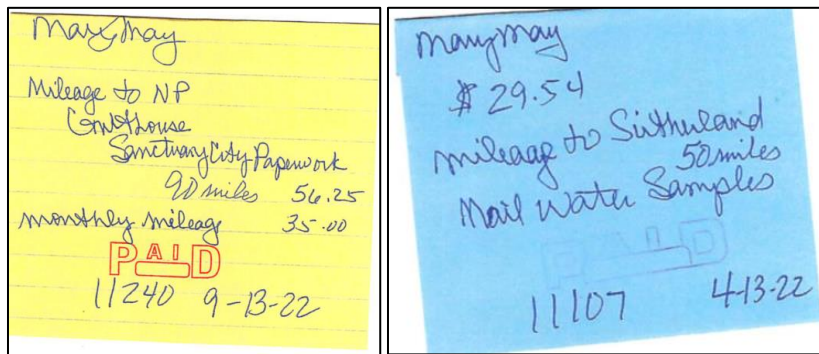 Mary May
Mileage to NP
Courthouse
Sanctuary City Paperwork
90 miles 56.25
monthly mileage 35.00
PAID
11240 9-13-22
Mary May
$ 29.54
mileage to Sutherland
50 miles
Mail Water Samples
PAID
11107 4-13-22